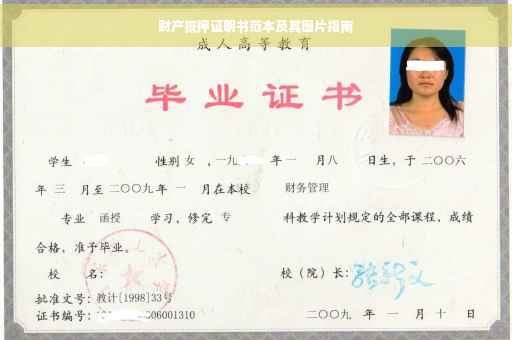 财产抵押证明书范本及其图片指南
成人高等教育
毕业证书
学生 性别 女 ，一九 年 一 月八 日生，于 二〇〇六
年 三 月至 二〇〇九年 一 月在本校 财务管理
专业 函授 学习，修完 专 科教学计划规定的全部课程，成绩
合格，准予毕业。
校 名： 校（院）长：
批准文号：教计[1998]33号
证书编号： 06001310 二〇〇九 年 一 月 十 日